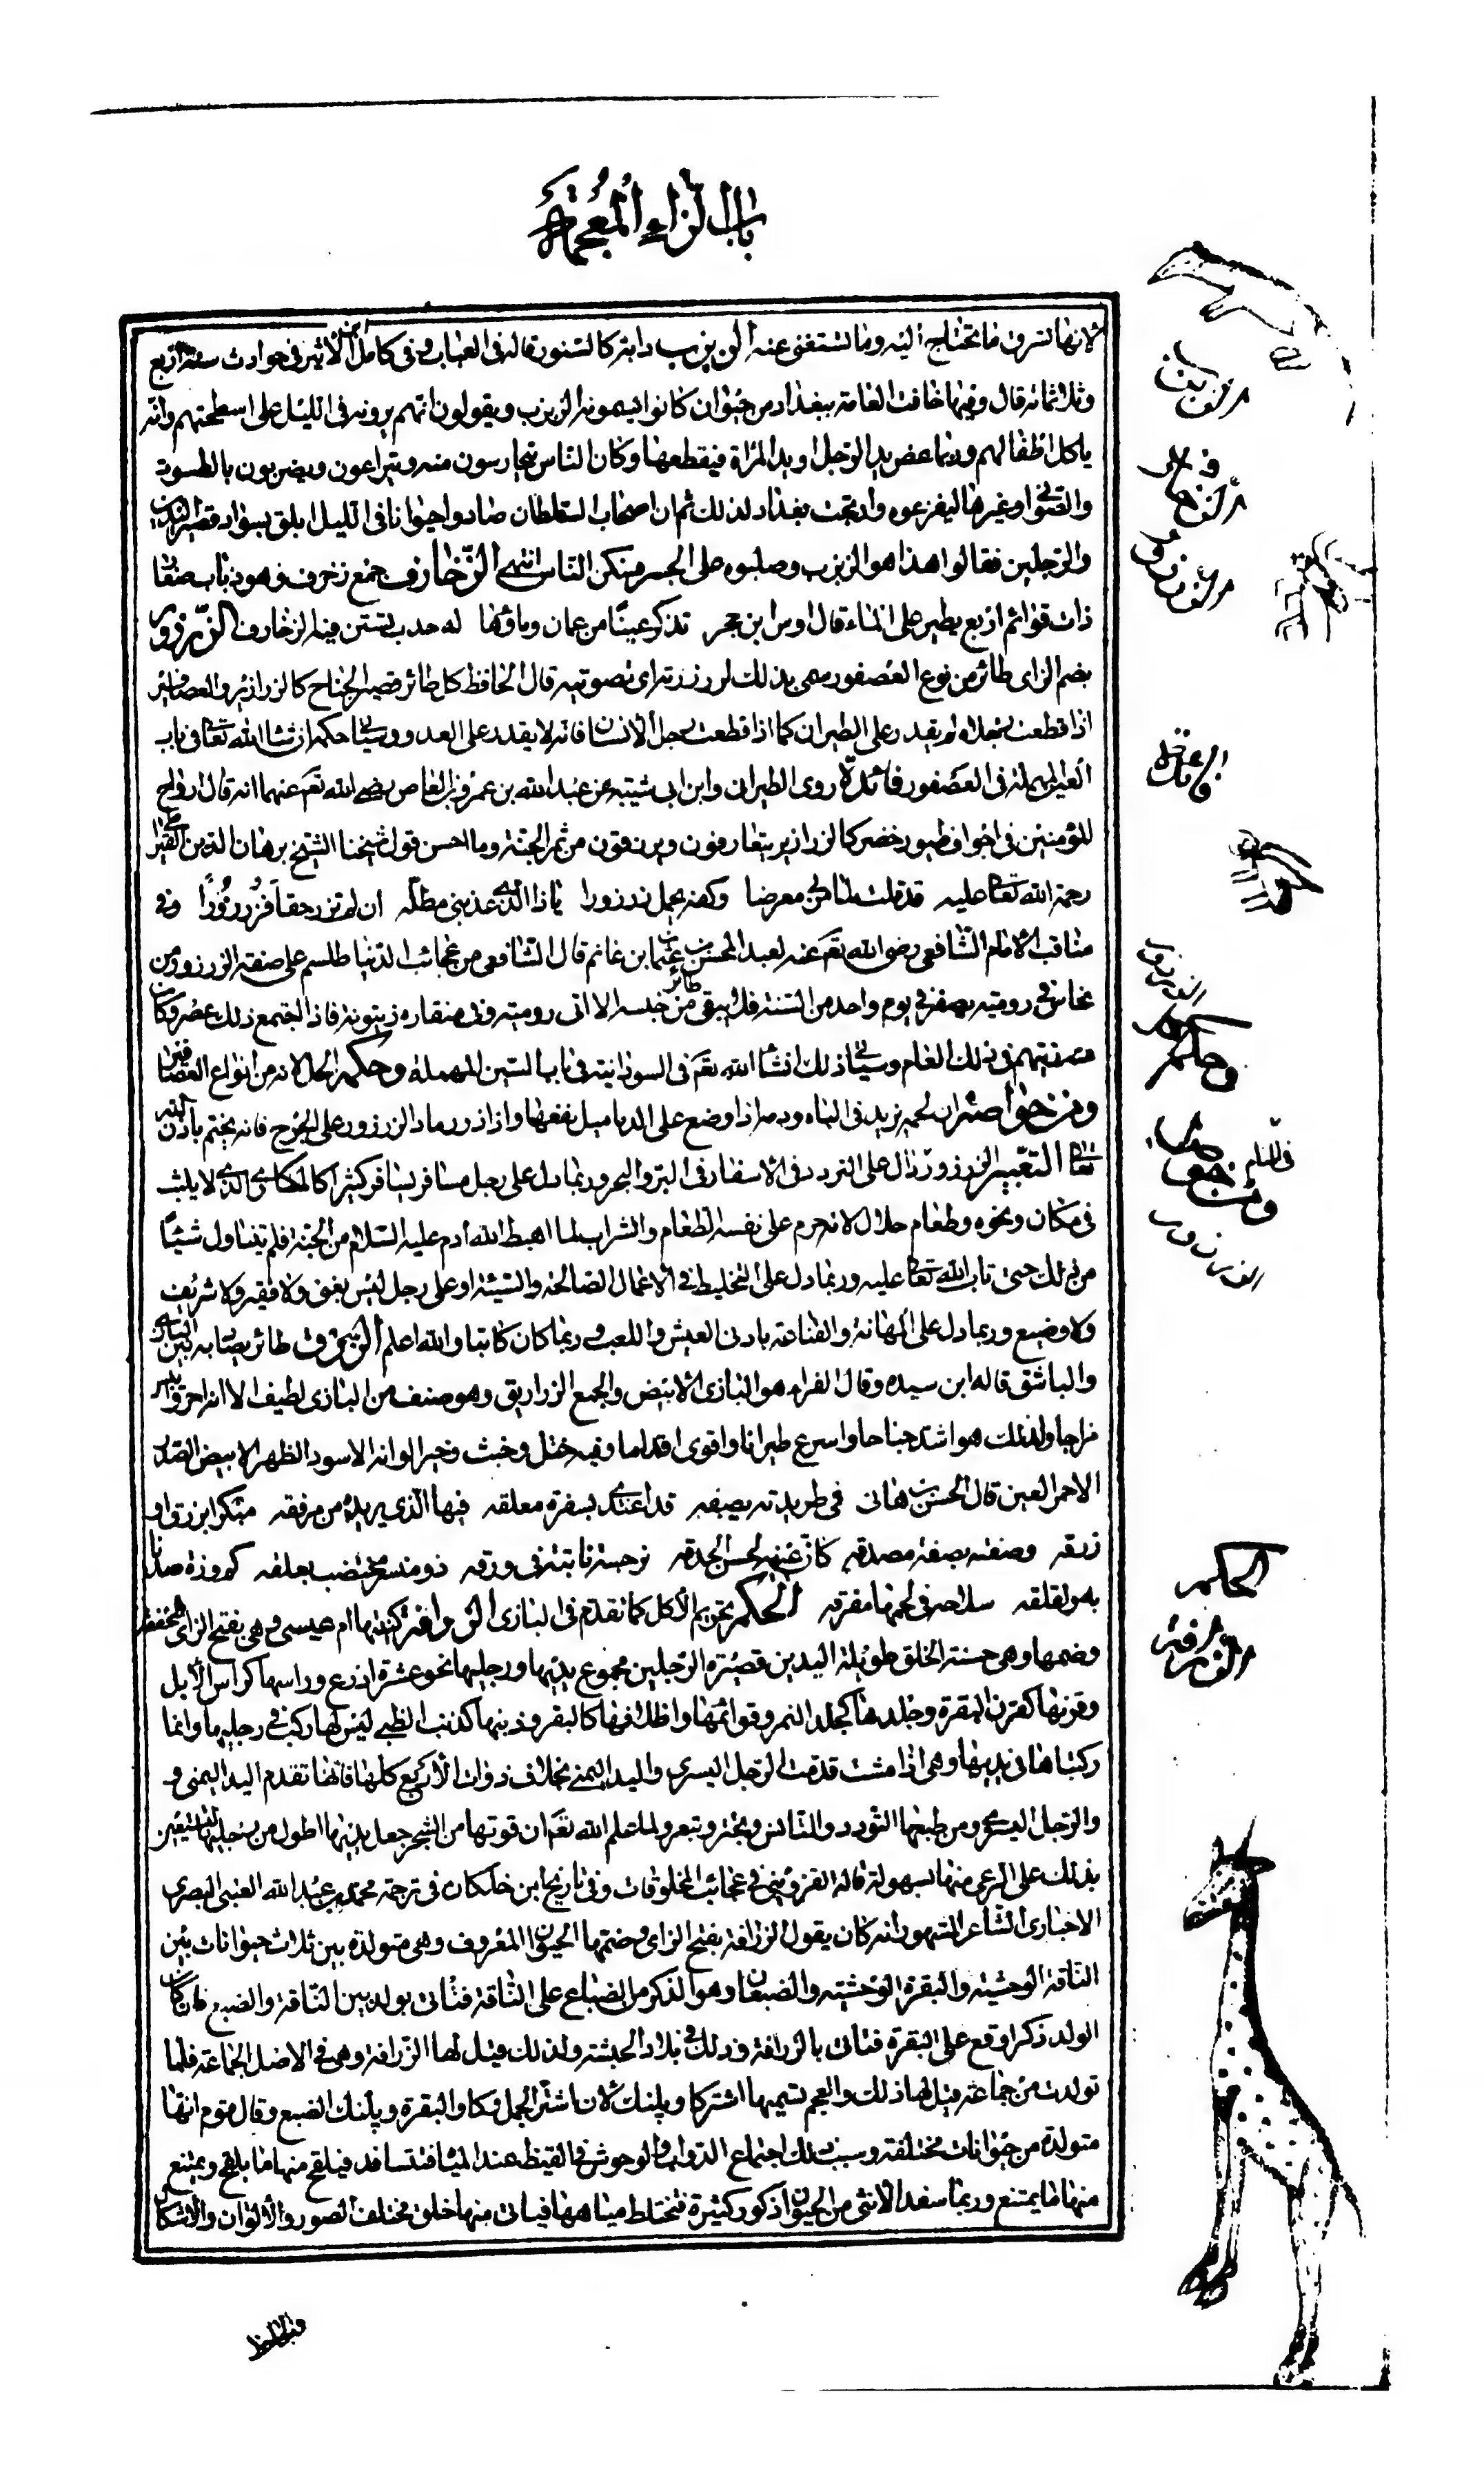 باب الزاء المعجمة
لانها تسرق ما تحتاج اليه وما تستغنى عنه الزبزب دابة كالسنور قاله فى العباب وفى كامل ابن الاثير فى حوادث سنة اربع
وثلاثمائة قال وفيها خافت العامة ببغداد من حيوان كانوا يسمونه الزبزب ويقولون انهم يرونه فى الليل على اسطحتهم وانه
ياكل اطفالهم وربما عض يد الرجل او يد المراة فيقطعها وكان الناس يتحارسون منه ويتزاعون ويضربون بالطسوت
والصوانى وغيرها ليفزعوه وارتجت بغداد لذلك ثم ان اصحاب السلطان صادوا حيوانا فى الليل ابلق بسواد قصير اليدين
والرجلين فقالوا هذا هو الزبزب وصلبوه على الجسر فسكن الناس انتهى الزخارف جمع زخرف وهو ذباب صغار
ذات قوائم اربع يطير على الماء قال اوس ابن حجر تذكر عينا من عمان وماؤها له حدب تستن فيه الزخارف الزرزور
بضم الزاى طائر من نوع العصفور سمى بذلك لزرزرته اى تصويته قال الجاحظ كل طائر قصير الجناح كالزرازير والعصافير
اذا قطعت رجلاه لم يقدر على الطيران كما اذا قطعت رجل الانسان فانه لا يقدر على العدو وسياتى حكمه ان شاء الله تعالى فى باب
العين المهملة فى العصفور فائدة روى الطبرانى وابن ابى شيبة عن عبد الله بن عمرو بن العاص رضى الله تعم عنهما انه قال ارواح
المؤمنين فى اجواف طيور خضر كالزرازير يتعارفون ويرزقون من ثمر الجنة وما احسن قول شيخنا الشيخ برهان الدين القيراطى
رحمة الله تعالى عليه قد قلت لما مر بى معرضا وكفه يحمل زرزورا يا ذا الذى عذبنى مطله ان لم تزر حقا فزر زورا وفى
مناقب الامام الشافعى رضى الله تعم عنه لعبد المحسن بن عثمان بن غانم قال الشافعى من عجائب الدنيا طلسم على صفة الزرزور من
نحاس فى رومية يصفر فى يوم واحد من السنة فلا يبقى طائر من جنسه الا اتى رومية وفى منقاره زيتونة فاذا اجتمع ذلك عصر وكان
منه زيتهم فى ذلك العام وسياتى ذلك انشا الله تعم فى السودانية فى باب السين المهملة وحكمه الحل لانه من انواع العصافير
ومن خواصه ان لحمه يزيد فى الباه ودمه اذا وضع على الدماميل نفعها واذا ذر رماد الزرزور على الجرح فانه يختم باذن الله
تعالى التعبير الزرزور دال على التردد فى الاسفار فى البر والبحر وربما دل على رجل مسافر يسافر كثيرا كالمكارى الذى لا يلبث
فى مكان ونحوه وطعام حلال لانه حرم على نفسه الطعام والشراب لما اهبط الله ادم عليه السلام من الجنة فلم يتناول شيئا
من ذلك حتى تاب الله تعالى عليه وربما دل على التخليط فى الاعمال الصالحة والسيئة او على رجل ليس بغنى ولا فقير ولا شريف
ولا وضيع وربما دل على المهانة والقناعة بادنى العيش واللعب وربما كان كاتبا والله اعلم الزرق طائر يصاد به بين البازى
والباشق قاله ابن سيده وقال الفراء هو البازى الابيض والجمع الزراريق وهو صنف من البازى لطيف الا انه احر وايبس
مزاجا ولذلك هو اشد جناحا واسرع طيرانا واقوى اقداما وفيه ختل وخبث وخير الوانه الاسود الظهر الابيض الصدر
الاحمر العين قال الحسن بن هانى فى طريدته يصفه قد اغتدى بسفرة معلقه فيها الذى يريده من مرفقه مبكرا بزرق او
زرقه وصفته بصفة مصدقه كان عينه لحسن الحدقه نرجسة نابتة فى ورقه ذو منسر مختضب بعلقه كم وزة صدنا
به ولقلقه سلاحه فى لحمها مفرقه الحكم تحريم الاكل كما تقدم فى البازى الزرافة كنيتها ام عيسى وهى بفتح الزاى المخففة
وضمها وهى حسنة الخلق طويلة اليدين قصيرة الرجلين مجموع يديها ورجليها نحو عشرة اذرع وراسها كراس الابل
وقرنها كقرن البقرة وجلدها كجلد النمر وقوائمها واظلافها كالبقر وذنبها كذنب الظبى ليس لها ركب فى رجليها وانما
ركبتاها فى يديها وهى اذا مشت قدمت الرجل اليسرى واليد اليمنى بخلاف ذوات الاربع كلها فانها تقدم اليد اليمنى و
والرجل اليسرى ومن طبعها التودد والتانس وتجتر وتبعر ولما علم الله تعم ان قوتها من الشجر جعل يديها اطول من رجليها لتستعين
بذلك على الرعى منها بسهولة قاله القزوينى فى عجائب المخلوقات وفى تاريخ ابن خلكان فى ترجمة محمد بن عبد الله العتبى البصرى
الاخبارى الشاعر المشهور انه كان يقول الزرافة بفتح الزاى وضمها الحيوان المعروف وهى متولدة بين ثلاث حيوانات بين
الناقة الوحشية والبقرة الوحشية والضبعان وهو الذكر من الضباع على الناقة فتاتى بولد بين الناقة والضبع فان كان
الولد ذكرا وقع على البقرة فتاتى بالزرافة وذلك فى بلاد الحبشة ولذلك قيل لها الزرافة وهى فى الاصل الجماعة فلما
تولدت من جماعة قيل لها ذلك والعجم تسميها اشتركا وپلنك لان اشتر الجمل وكاو البقرة وپلنك الضبع وقال قوم انها
متولدة من حيوانات مختلفة وسبب ذلك اجتماع الدواب والوحوش فى القيظ عند المياه فتتسافد فيلقح منها ما يلقح ويمتنع
منها ما يمتنع وربما سفد الانثى من الحيوان ذكور كثيرة فتختلط مياهها فياتى منها خلق مختلف الصور والالوان والاشكال
الزبزب
الزخارف
الزرزور
فائدة
الزرزور
وحكمه
ومن خواصه
الزرزور
الحكم
الزرافة